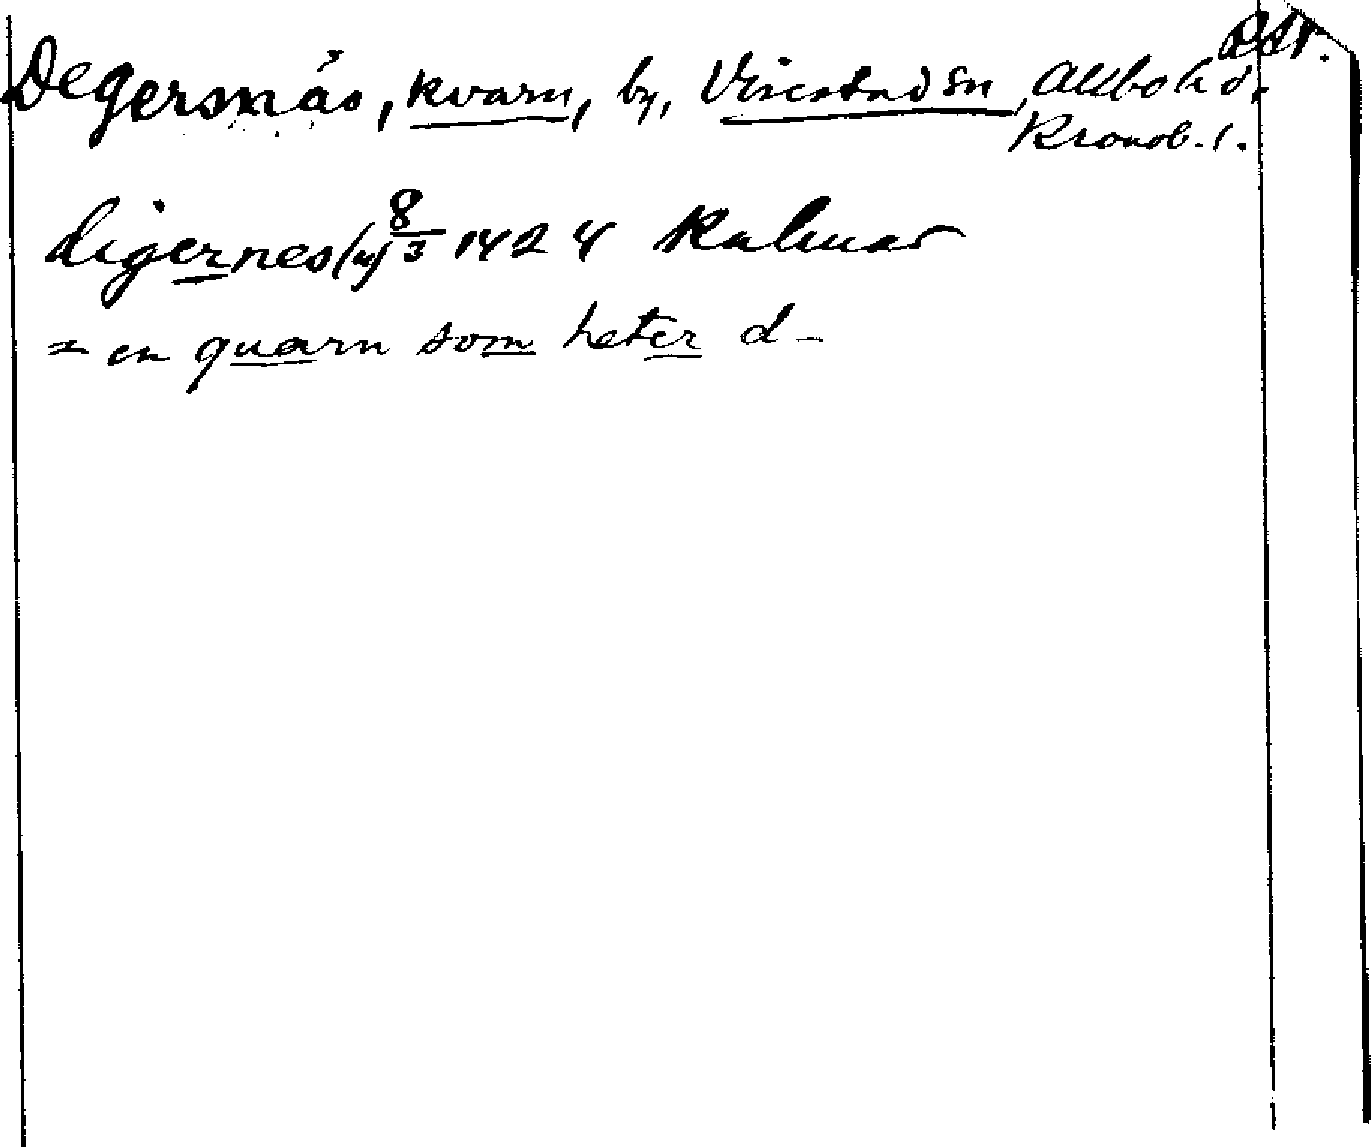 Degersnäs, kvarn, by, Virestad sn, Allbo hd.
Kronob. l.
digernes (u) 8/3 1424 Kalmar
= en quarn som heter d-